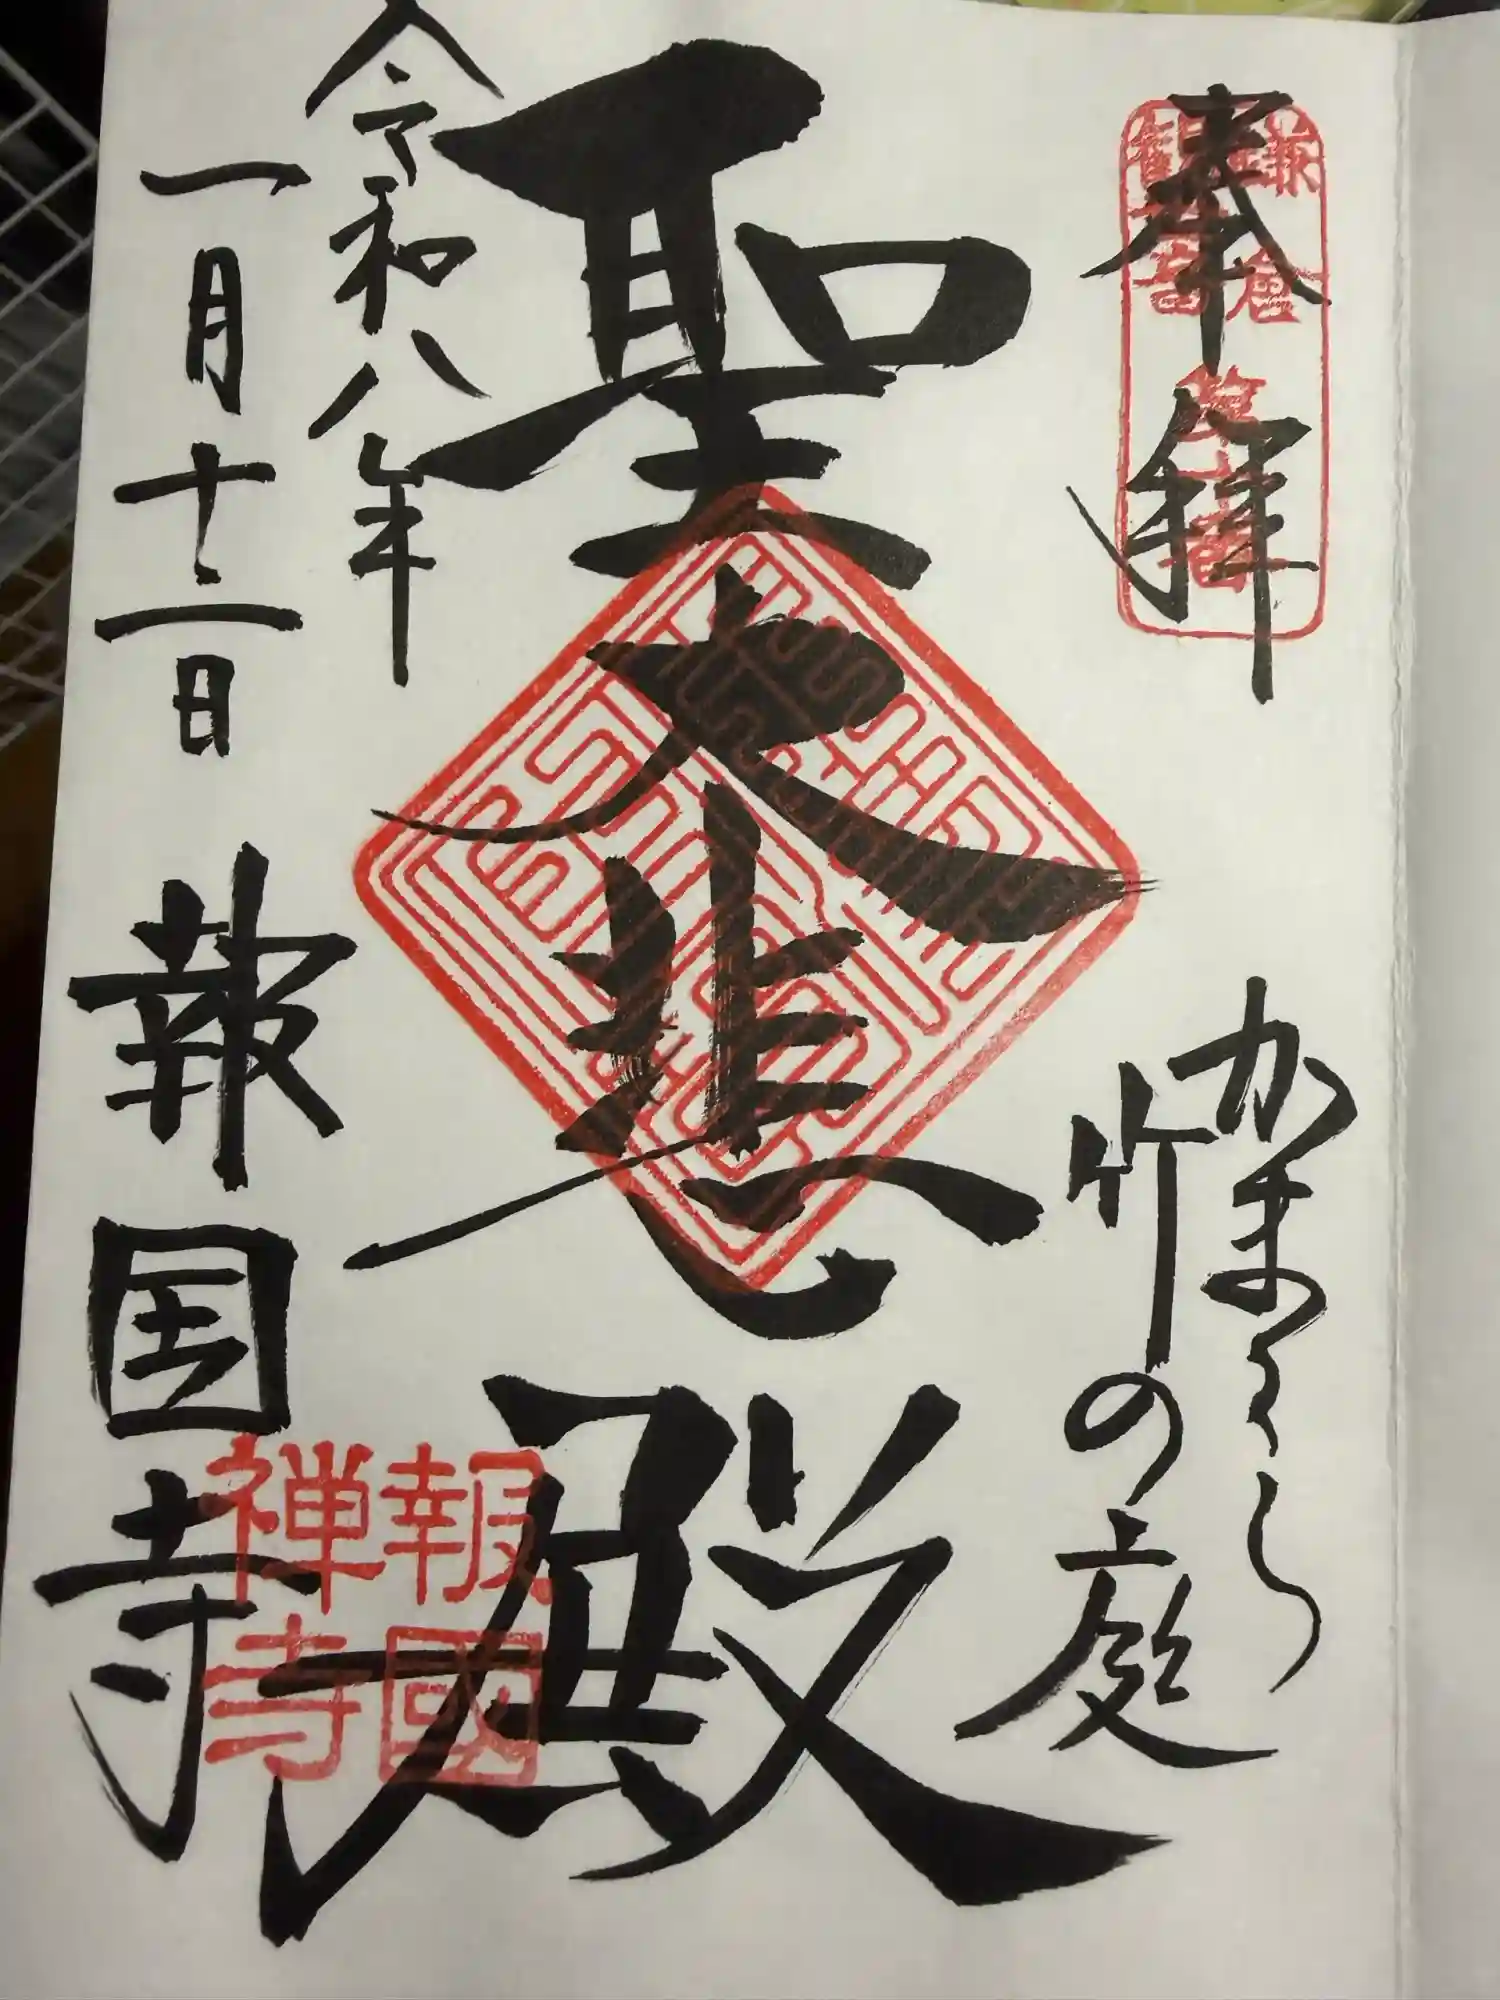 奉拝
鎌倉
観音
第十番
かまくら
竹の庭
聖大悲殿
令和八年
一月十二日
報国寺
報國
禅寺